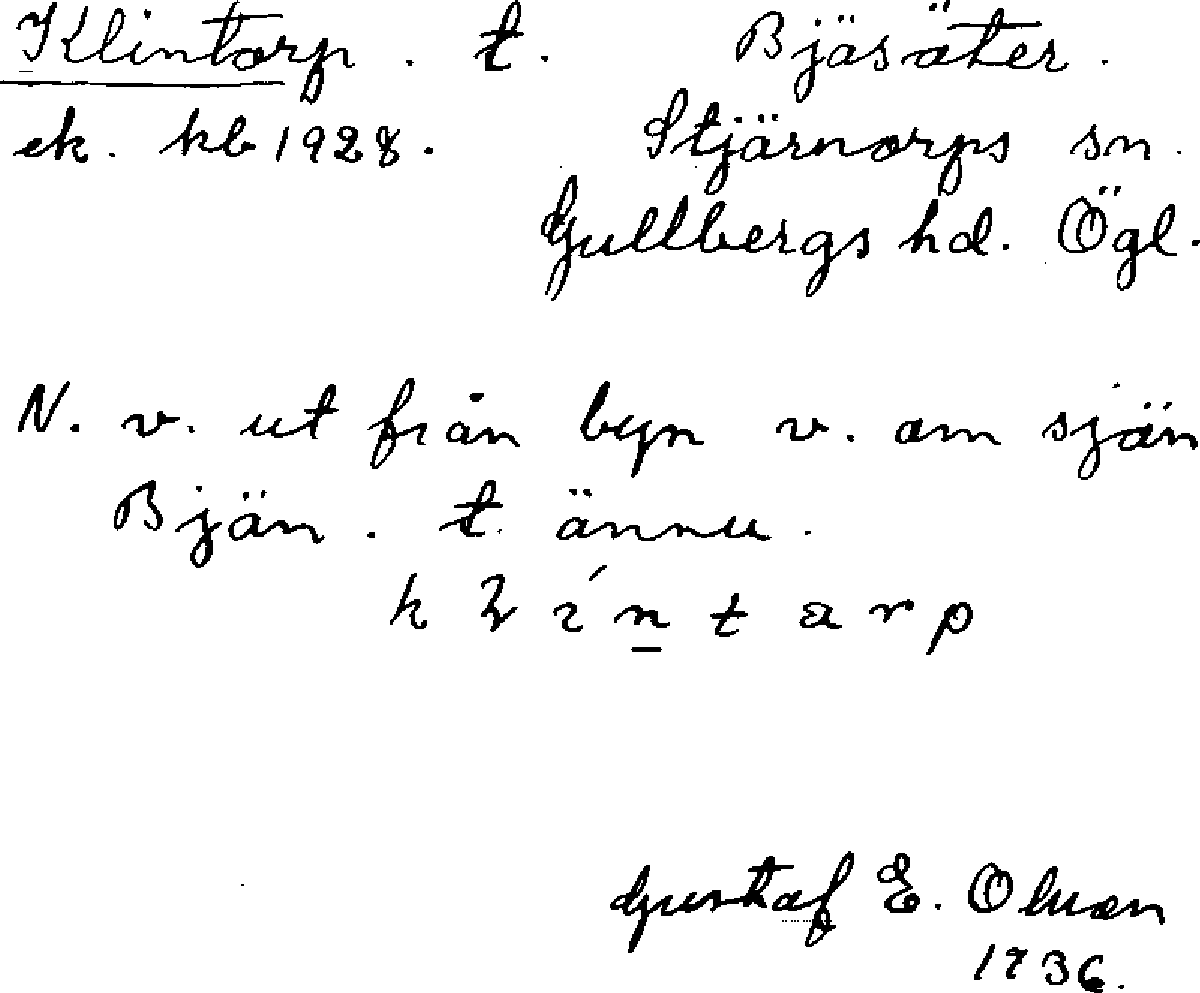 Klintorp. t. Bjäsäter.
ek. kb 1928. Stjärnorps sn.
Gullbergs hd. Ögl.
N. v. ut från byn v. om sjön
Bjön. t. ännu.
Gustaf E. Olsson
1936.